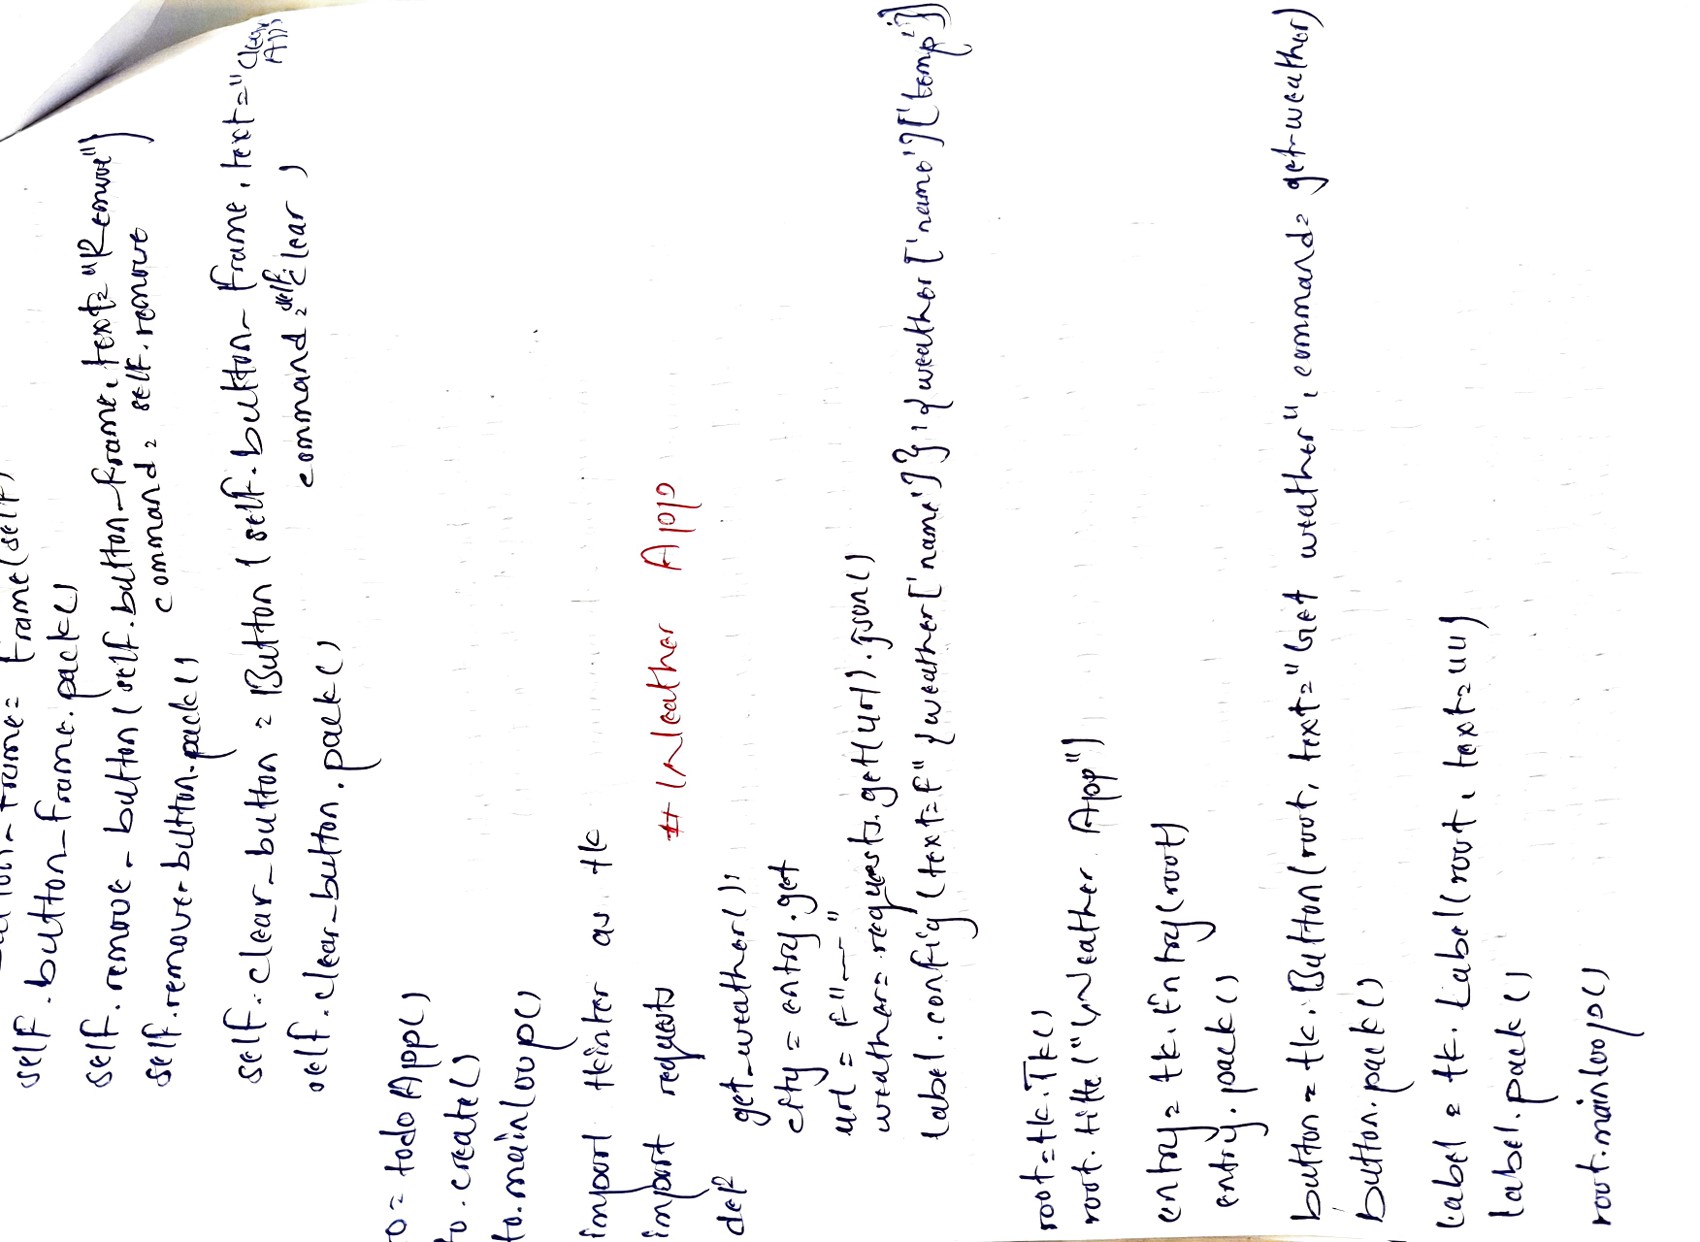 self.button_frame.pack()
self.remove_button(self.button_frame, text="Remove")
command= self.remove
self.remove-button.pack()
self.clear_button = Button (self.button_frame, text="Clear All
command=self.clear )
self.clear_button.pack()
o = todo App()
to.create()
to.mainloop()
import tkinter as tk
import requests # Weather App
def get_weather():
city = entry.get
url = f"—"
weather= requests.get(url).json()
label.config(text=f"{weather['name']};{weather['name']['temp']}
root=tk.Tk()
root.title("Weather App")
entry= tk.Entry(root)
entry.pack()
button = tk.Button(root, text="Get weather", command= get-weather)
button.pack()
label = tk.Label(root, text="")
label.pack()
root.mainloop()